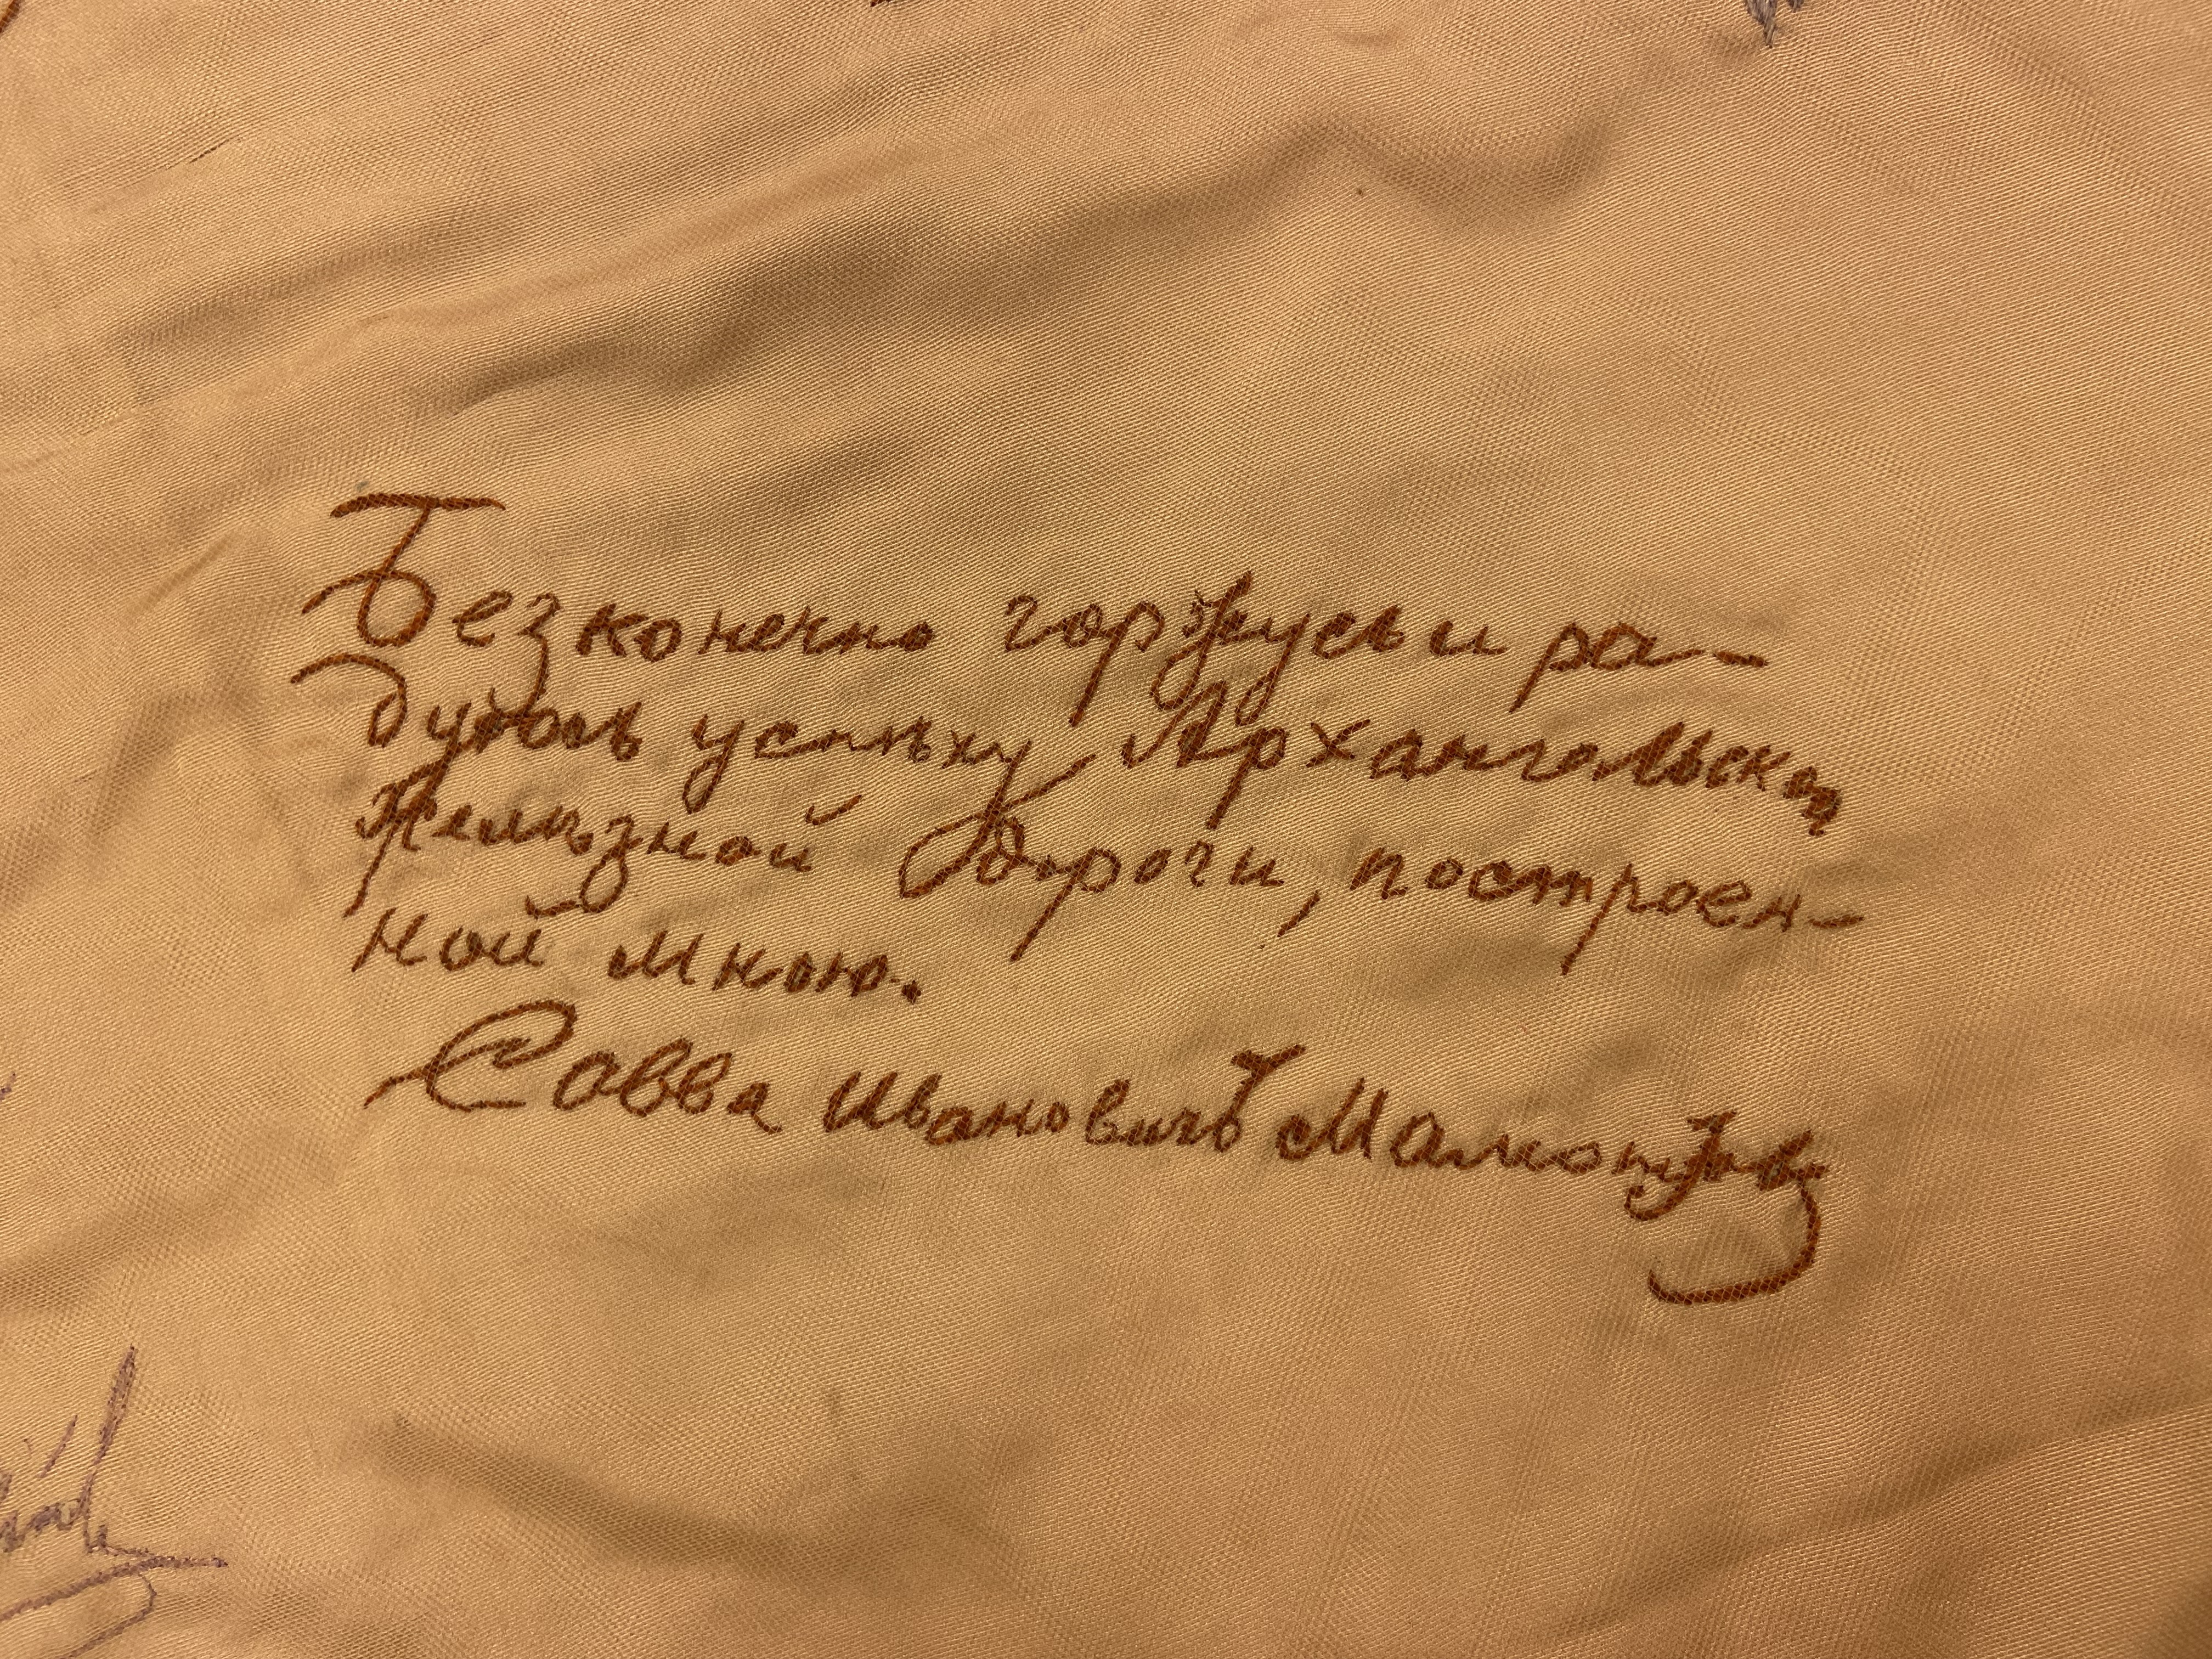 Безконечно горжусь и ра-
дуюсь успѣху Архангельской
Желѣзной Дороги, построен-
ной мною.
Савва Ивановичъ Мамонтовъ